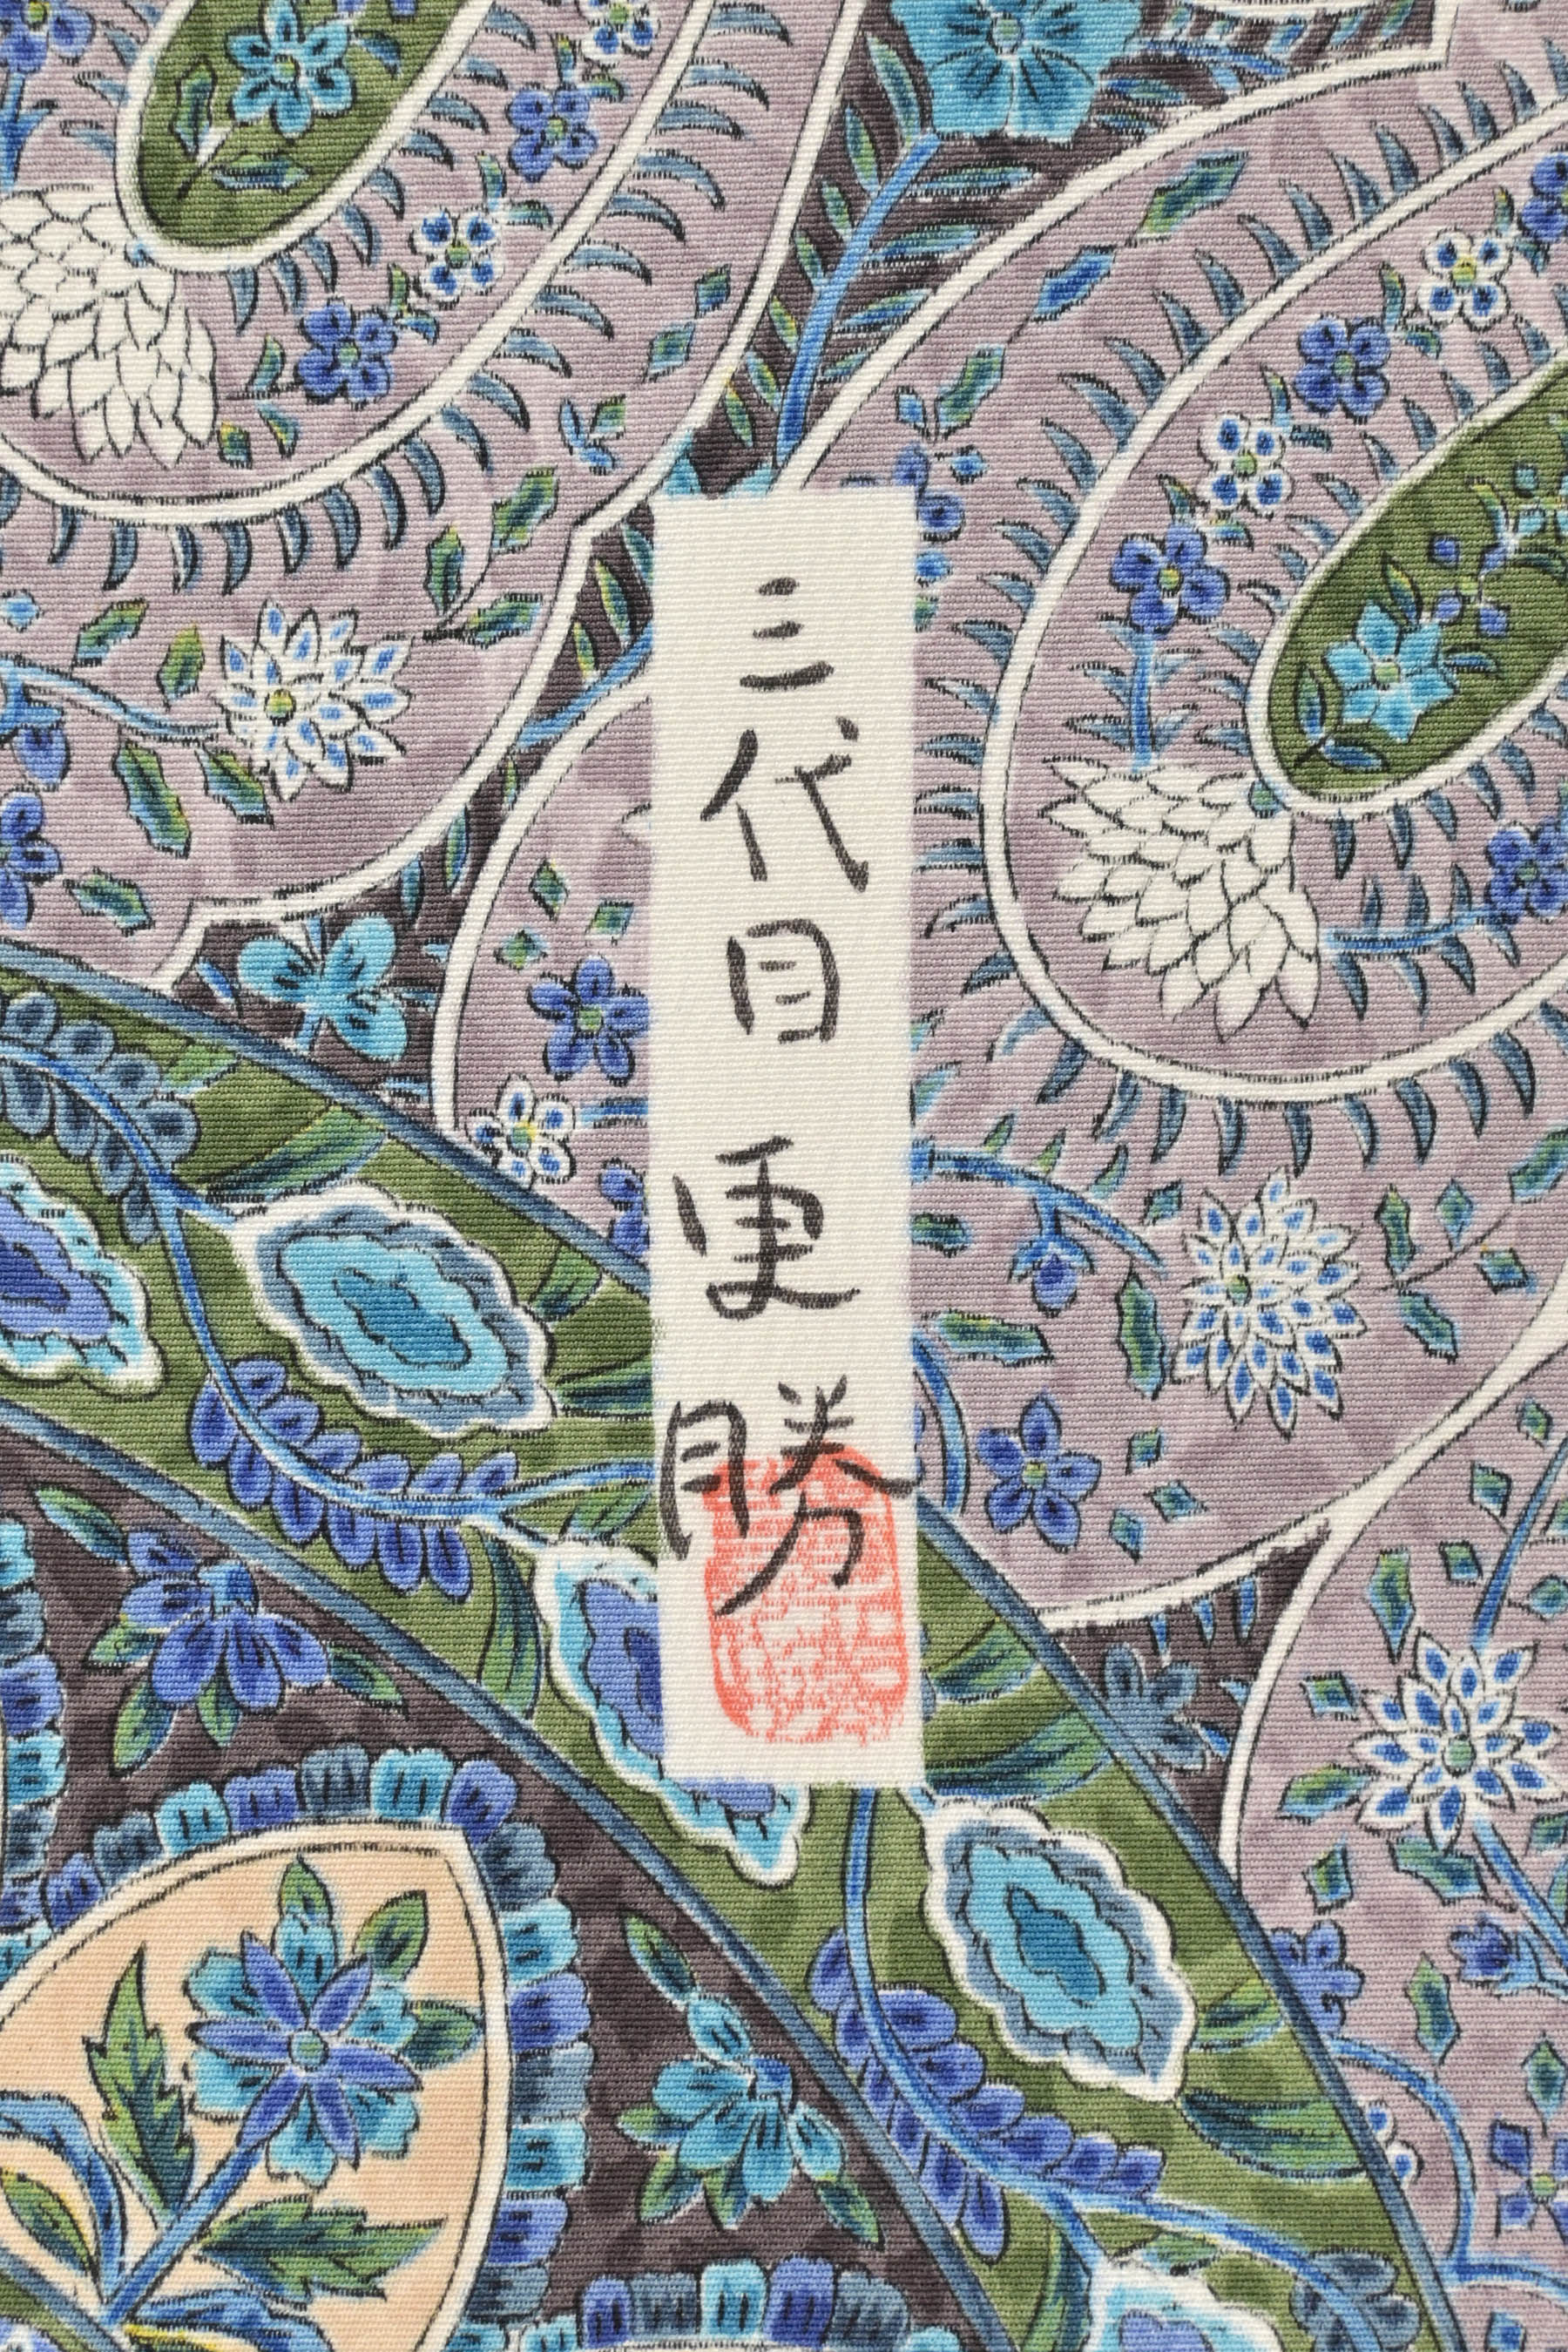 三代目更勝